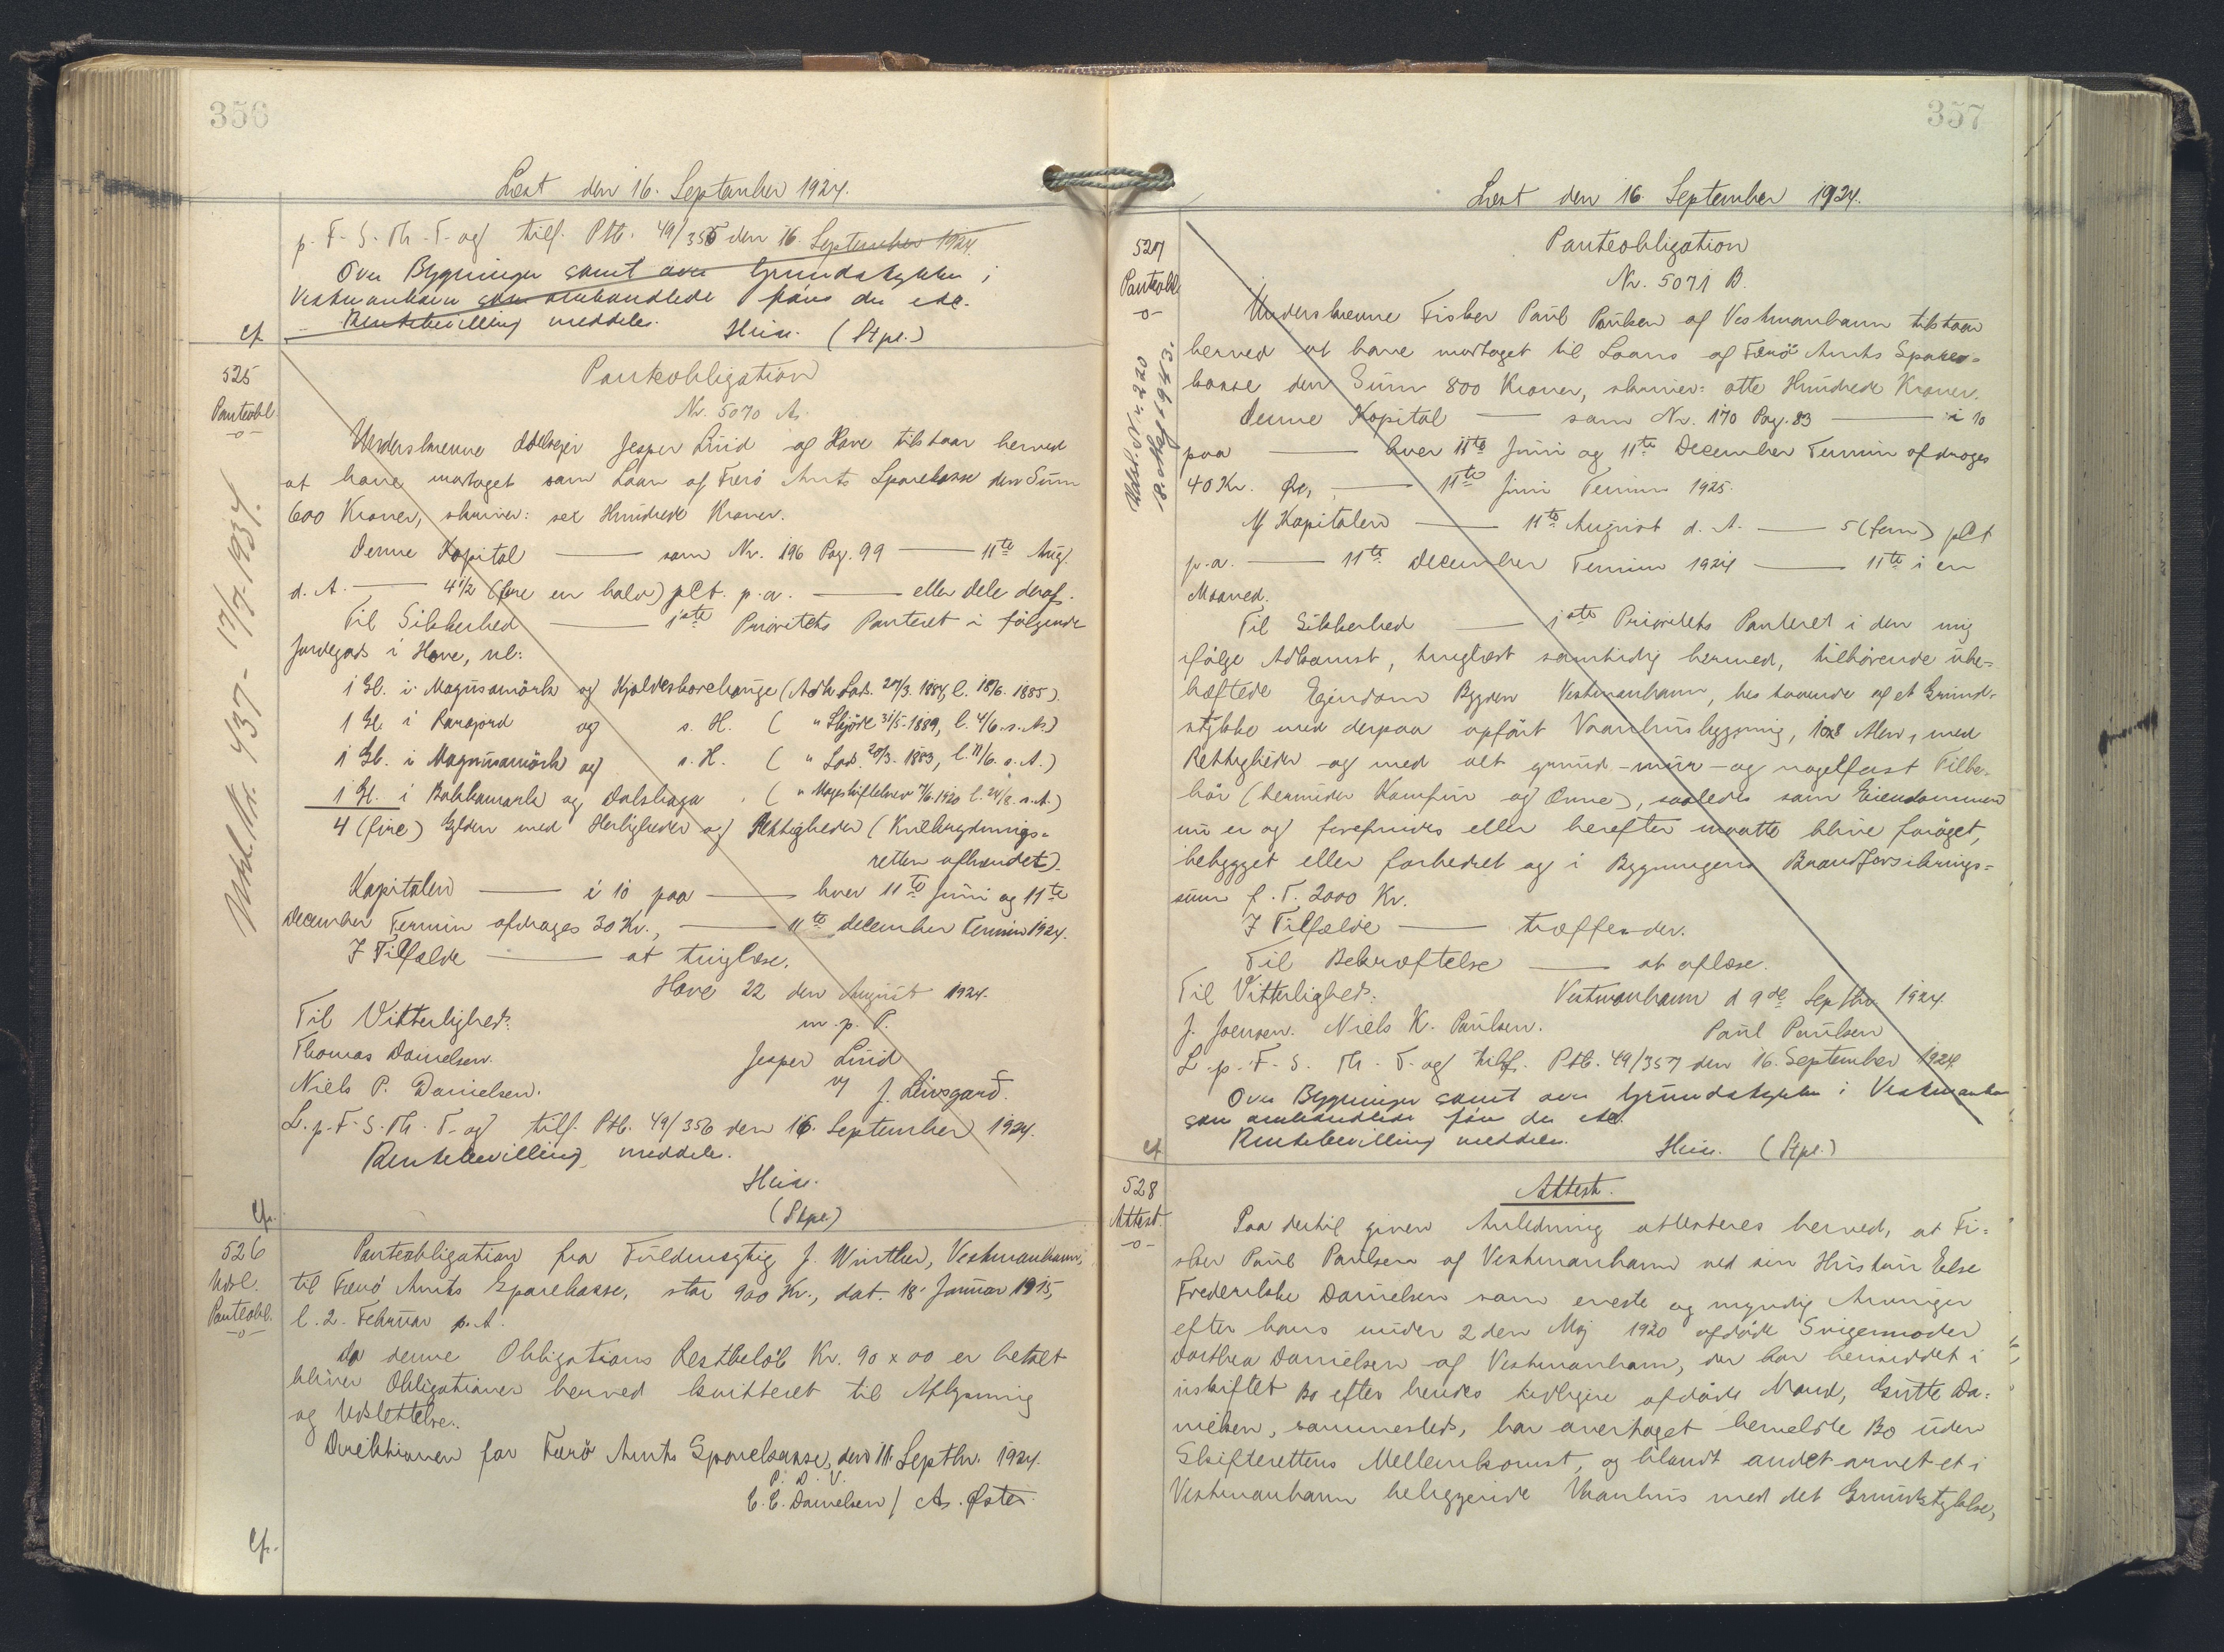 356
Læst den 16. September 1924.
p. F. S. Th. T. og tilf. Ptb. 49/355 den 16. September 1924.
Over Bygninger samt over Grundstykke i
Vestmanhavn som omhandlede fåes der etc.
Rentebevilling meddeles. Heise. (Stpl.)
Cf.
525
Panteobl.
-o-
Udsl. Nr. 437 - 17/7 1934.
Panteobligation
Nr. 5070 A.
Underskrevne Odelsejer Jesper Lüid af Hove tilstaar herved
at have modtaget som Laan af Færö Amts Sparekasse den Sum
600 Kroner, skriver: sex Hundrede Kroner.
Denne Kapital — som Nr. 196 Pag. 99 — 11te Aug.
d. A. — 4 1/2 (fire en halv) pCt. p. a. — eller dele deraf.
Til Sikkerhed — 1ste Prioritets Panteret i følgende
Jordegods i Hove, nl:
1 Gl. i Magnusamörk og Hjoldeskorehauge (Adk. Lod. 27/3. 1884, l. 18/6. 1885).
1 Gl. i og s. H. ( " Skjöde 31/5. 1889, l. 4/6. s. A.)
1 Gl. i Magnusamörk og s. H. ( " Lod. 20/3. 1883, l. 11/6. s. A.)
1 Gl. i Bakkamark og Dalshaga ( " Mageskiftebrev 7/6. 1920 l. 24/8. s. A.)
4 (fire) Gylden med Herligheder og Rettigheder (
retten afhændet).
Kapitalen — i 10 paa — hver 11te Juni og 11te
December Termin afdrages 30 Kr., — 11te December Termin 1924.
I Tilfælde — at tinglæse.
Hove 22 den August 1924.
Til Vitterlighed: m. p. P.
Thomas Danielsen. Jesper Lüid
Niels P. Danielsen. v/ J. Leivsgard.
L. p. F. S. Th. T. og tilf. Ptb. 49/356 den 16. September 1924.
Rentebevilling meddeles.
Heise.
(Stpl.)
Cf.
526
Udsl.
Panteobl.
-o-
Panteobligation fra Fuldmægtig J. Winther, Vestmanhavn,
til Færö Amts Sparekasse, stor 900 Kr., dat. 18. Januar 1915,
l. 2. Februar s. A.
Da denne Obligations Restbelöb Kr. 90 x 00 er betalt
bliver Obligationen herved kvitteret til Aflysning
og Udslettelse.
Direktionen for Færö Amts Sparekasse, den 11. Septbr. 1924.
P. D. V.
E. E. Danielsen / As. Øster.
Cf.
357
Læst den 16. September 1924.
527
Panteobl.
-o-
Udsl. Nr. 220
1943.
Panteobligation
Nr. 5071 B.
Underskrevne Fisker Paul Paulsen af Vestmanhavn tilstaar
herved at have modtaget til Laans af Færö Amts Spare-
kasse den Sum 800 Kroner, skriver: otte Hundrede Kroner.
Denne Kapital — som Nr. 170 Pag. 83 — i 10
paa — hver 11te Juni og 11te December Termin afdrages
40 Kr. — 11te Juni Termin 1925.
Af Kapitalen — 11te August d. A. — 5 (fem) pCt
p. a. — 11te December Termin 1924 — 11te i en
Maaned.
Til Sikkerhed — 1ste Prioritets Panteret i den mig
ifølge Adkomst, tinglæst samtidig hermed, tilhörende ube-
hæftede Ejendom Bygden Vestmanhavn, bestaaende af et Grund-
stykke med derpaa opfört Vaanhusbygning, 10x8 Alen, med
Rettigheder og med alt grund- mur- og nagelfast Tilbe-
hör (herunder Komfur og Ovne), saaledes som Eiendommen
nu er og forefindes eller herefter maatte blive foröget,
bebygget eller forbedret og i Bygningens Brandforsikrings-
sum p. T. 2000 Kr.
I Tilfælde — træffer den.
Til Bekræftelse — at aflæse.
Til Vitterlighed: Vestmanhavn d 9de Septbr. 1924
J. Joensen. Niels K. Paulsen. Paul Paulsen
L. p. F. S. Th. T. og tilf. Ptb. 49/357 den 16. September 1924.
Over Bygninger samt over Grundstykke i Vestmanhavn
som omhandlede fåes der etc.
Rentebevilling meddeles. Heise. (Stpl.)
Cf
528
Attest.
-o-
Attest.
Paa dertil given Anledning attesteres herved, at Fi-
sker Paul Paulsen af Vestmanhavn ved sin Hustru Else
Frederikke Danielsen som eneste og myndig Arvinger
efter hans under 2 den Maj 1920 afdöde Svigermoder
Dorthea Danielsen af Vestmanhavn, der har hensiddet i
uskiftet Bo efter hendes tidligere afdöde Mand, Gutte Da-
nielsen, sammesteds, har overtaget bemeldte Bo uden
Skifterettens Mellemkomst, og blandt andet arvet et i
Vestmanhavn beliggende Vaanhus med det Grundstykke,